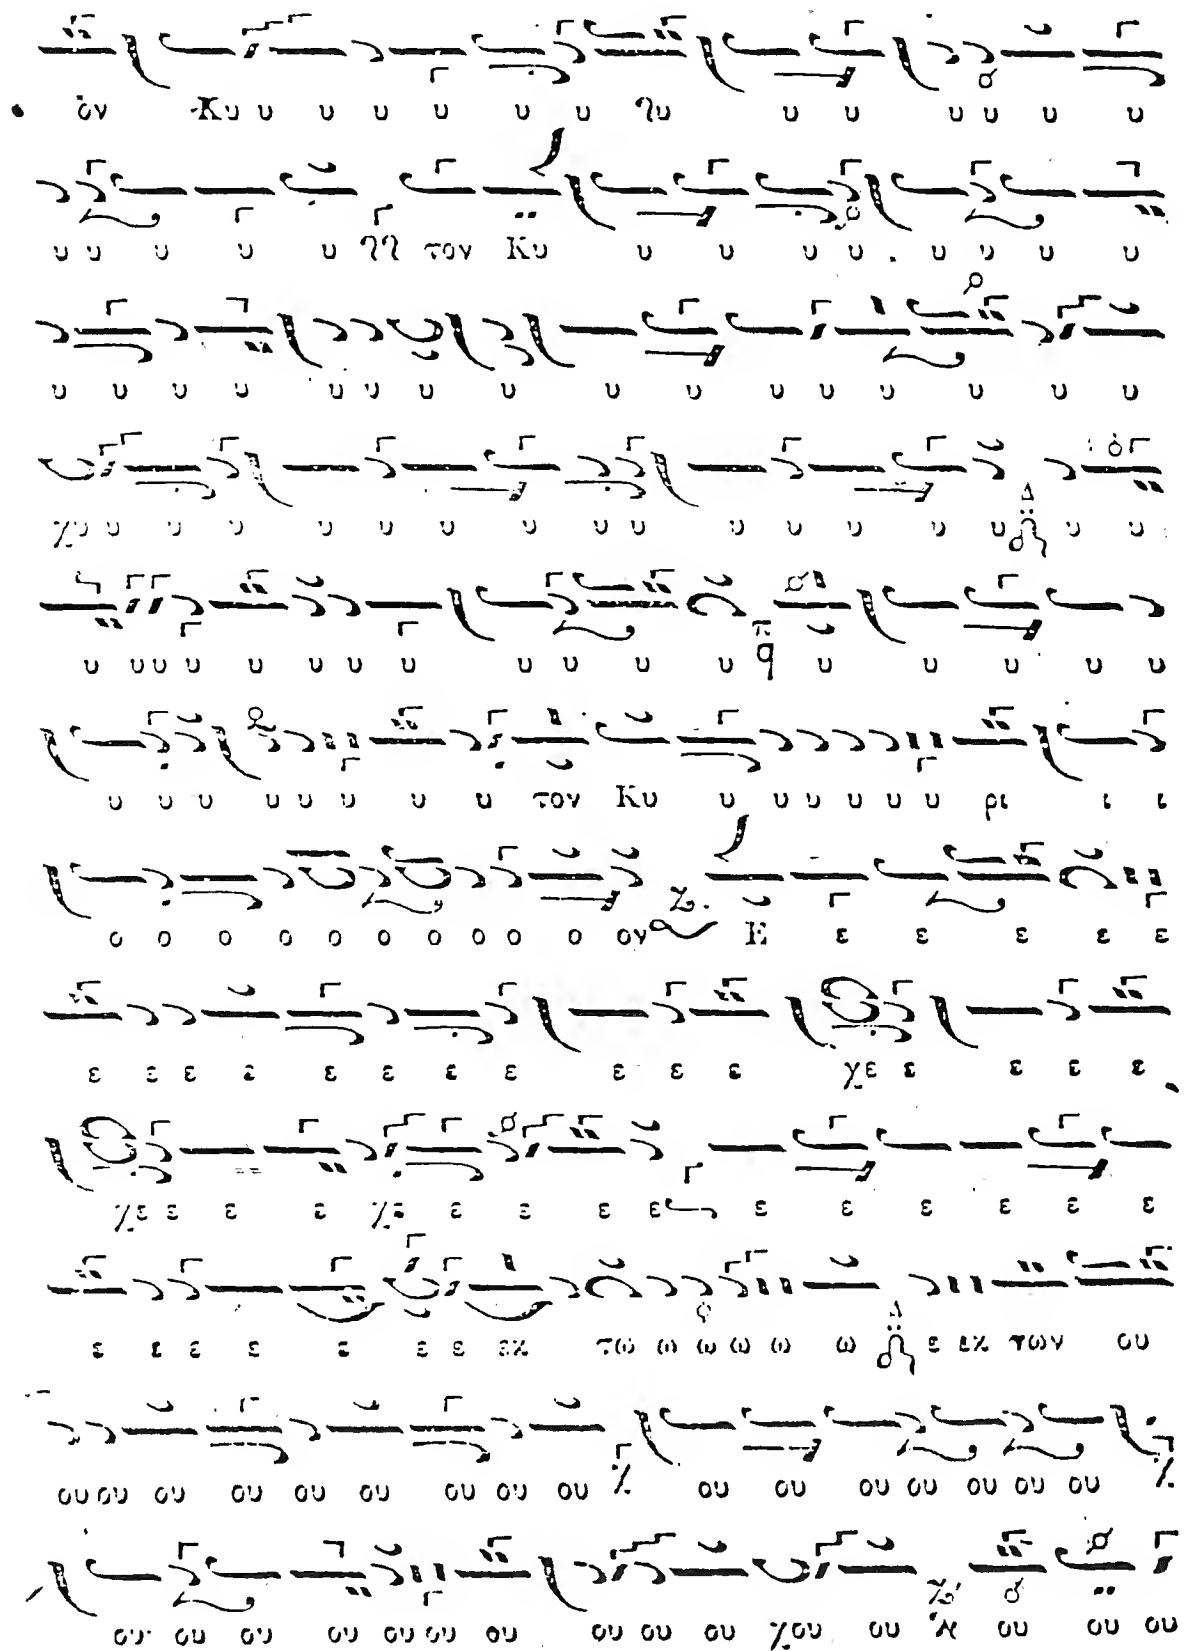 όν Κυ υ υ υ υ υ υ λυ υ υ υ υ υ υ
υ υ υ υ υ τον Κυ υ υ υ υ υ υ υ
υ υ υ υ υ υ υ υ υ υ υ υ υ υ υ
χυ υ υ υ υ υ υ υ υ υ υ υ υ υ υ υ
υ υ υ υ υ υ υ υ υ υ υ υ π q υ υ υ υ υ
υ υ υ υ υ υ υ υ τον Κυ υ υ υ υ υ υ ρι ι ι
ο ο ο ο ο ο ο ο ο ο ον Ε ε ε ε ε ε
ε ε ε ε ε ε ε ε ε ε ε χε ε ε ε ε
χε ε ε ε χε ε ε ε ε ε ε ε ε ε ε
ε ε ε ε ε ε ε εκ τω ω ω ω ω ω Δ ε εκ των ου
ου ου ου ου ου ου ου ου ου ου ου ου ου ου ου ου
ου ου ου ου ου ου ου ου ου ου χου ου ου ου ου